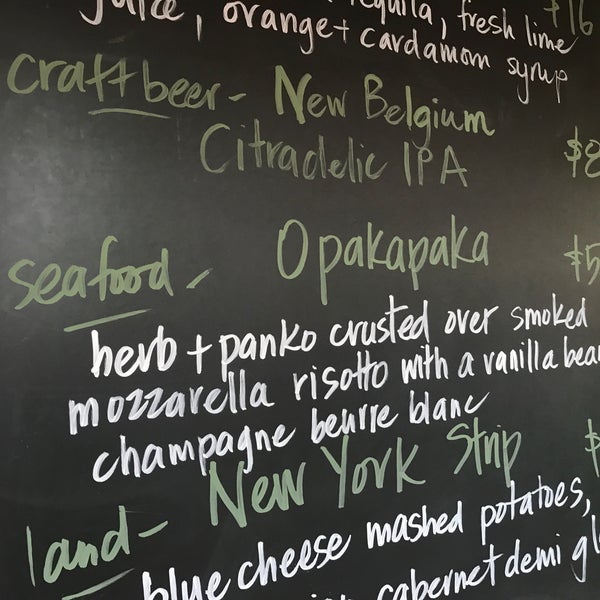 juice, orange + cardamom syrup
tequila, fresh lime
craft beer - New Belgium
Citradelic IPA $8
seafood - Opakapaka $5
herb + panko crusted over smoked
mozzarella risotto with a vanilla bean
champagne beurre blanc
land - New York Strip $
blue cheese mashed potatoes,
cabernet demi gl